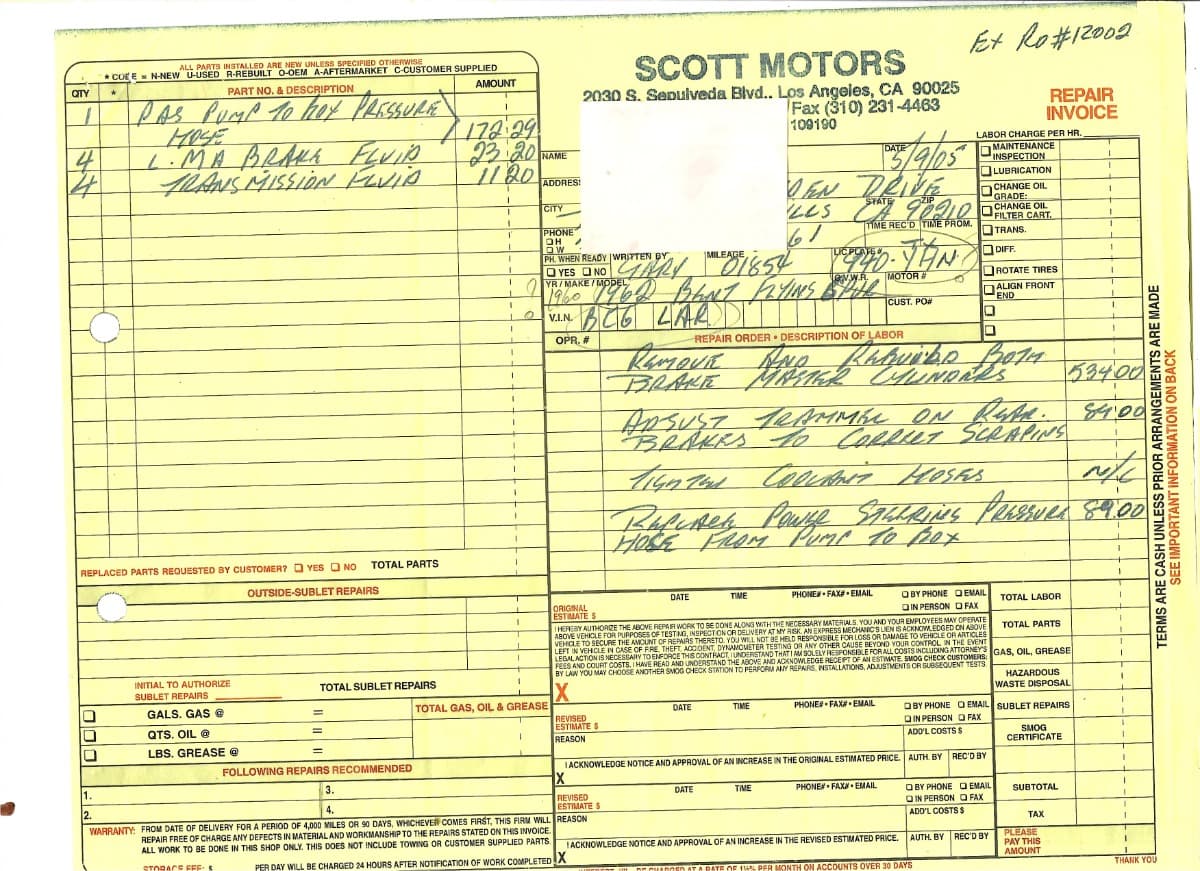 Ex Ro#12002
SCOTT MOTORS
2030 S. Sepulveda Blvd., Los Angeles, CA 90025
Fax (310) 231-4463
109190
REPAIR
INVOICE
ALL PARTS INSTALLED ARE NEW UNLESS SPECIFIED OTHERWISE
* CODE = N-NEW U-USED R-REBUILT O-OEM A-AFTERMARKET C-CUSTOMER SUPPLIED
QTY * PART NO. & DESCRIPTION AMOUNT
1 PAS PUMP TO BOX PRESSURE
HOSE 172.29
4 L.MA BRAKE FLUID 23 20
4 TRANSMISSION FLUID 11 20
REPLACED PARTS REQUESTED BY CUSTOMER? YES NO TOTAL PARTS
OUTSIDE-SUBLET REPAIRS
INITIAL TO AUTHORIZE
SUBLET REPAIRS TOTAL SUBLET REPAIRS
GALS. GAS @ = TOTAL GAS, OIL & GREASE
QTS. OIL @ =
LBS. GREASE @ =
FOLLOWING REPAIRS RECOMMENDED
1. 3.
2. 4.
WARRANTY: FROM DATE OF DELIVERY FOR A PERIOD OF 4,000 MILES OR 90 DAYS, WHICHEVER COMES FIRST, THIS FIRM WILL
REPAIR FREE OF CHARGE ANY DEFECTS IN MATERIAL AND WORKMANSHIP TO THE REPAIRS STATED ON THIS INVOICE.
ALL WORK TO BE DONE IN THIS SHOP ONLY. THIS DOES NOT INCLUDE TOWING OR CUSTOMER SUPPLIED PARTS.
STORAGE FEE: $ PER DAY WILL BE CHARGED 24 HOURS AFTER NOTIFICATION OF WORK COMPLETED
NAME DATE 5/9/05
ADDRESS DEN DRIVE
CITY LLS STATE CA ZIP 90210
PHONE H W 61 TIME REC'D TIME PROM.
PH. WHEN READY YES NO WRITTEN BY GARY MILEAGE 01854 LIC PLATE # 940-THN
G.V.W.R. MOTOR #
YR / MAKE / MODEL 1960 1962 BENT FLYING SPUR CUST. PO#
V.I.N. BCG LAR
OPR. # REPAIR ORDER • DESCRIPTION OF LABOR
REMOVE AND REBUILD BOTH
BRAKE MASTER CYLINDERS 534 00
ADJUST TRAMMEL ON REAR. 89.00
BRAKES TO CORRECT SCRAPING
TIGHTEN COOLANT HOSES N/C
REPLACE POWER STEERING PRESSURE 89.00
HOSE FROM PUMP TO BOX
LABOR CHARGE PER HR.
MAINTENANCE
INSPECTION
LUBRICATION
CHANGE OIL
GRADE:
CHANGE OIL
FILTER CART.
TRANS.
DIFF.
ROTATE TIRES
ALIGN FRONT
END
ORIGINAL
ESTIMATE $ DATE TIME PHONE# • FAX# • EMAIL BY PHONE EMAIL
IN PERSON FAX
I HEREBY AUTHORIZE THE ABOVE REPAIR WORK TO BE DONE ALONG WITH THE NECESSARY MATERIALS. YOU AND YOUR EMPLOYEES MAY OPERATE
ABOVE VEHICLE FOR PURPOSES OF TESTING, INSPECTION OR DELIVERY AT MY RISK. AN EXPRESS MECHANIC'S LIEN IS ACKNOWLEDGED ON ABOVE
VEHICLE TO SECURE THE AMOUNT OF REPAIRS THERETO. YOU WILL NOT BE HELD RESPONSIBLE FOR LOSS OR DAMAGE TO VEHICLE OR ARTICLES
LEFT IN VEHICLE IN CASE OF FIRE, THEFT, ACCIDENT, DYNAMOMETER TESTING OR ANY OTHER CAUSE BEYOND YOUR CONTROL. IN THE EVENT
LEGAL ACTION IS NECESSARY TO ENFORCE THIS CONTRACT, I UNDERSTAND THAT I AM SOLELY RESPONSIBLE FOR ALL COSTS INCLUDING ATTORNEY'S
FEES AND COURT COSTS. I HAVE READ AND UNDERSTAND THE ABOVE AND ACKNOWLEDGE RECEIPT OF AN ESTIMATE. SMOG CHECK CUSTOMERS:
BY LAW YOU MAY CHOOSE ANOTHER SMOG CHECK STATION TO PERFORM ANY REPAIRS, INSTALLATIONS, ADJUSTMENTS OR SUBSEQUENT TESTS.
X
REVISED
ESTIMATE $ DATE TIME PHONE# • FAX# • EMAIL BY PHONE EMAIL
IN PERSON FAX
REASON ADD'L COSTS $
I ACKNOWLEDGE NOTICE AND APPROVAL OF AN INCREASE IN THE ORIGINAL ESTIMATED PRICE. AUTH. BY REC'D BY
X
REVISED
ESTIMATE $ DATE TIME PHONE# • FAX# • EMAIL BY PHONE EMAIL
IN PERSON FAX
REASON ADD'L COSTS $
I ACKNOWLEDGE NOTICE AND APPROVAL OF AN INCREASE IN THE REVISED ESTIMATED PRICE. AUTH. BY REC'D BY
X
TOTAL LABOR
TOTAL PARTS
GAS, OIL, GREASE
HAZARDOUS
WASTE DISPOSAL
SUBLET REPAIRS
SMOG
CERTIFICATE
SUBTOTAL
TAX
PLEASE
PAY THIS
AMOUNT
THANK YOU
BE CHARGED AT A RATE OF 1½% PER MONTH ON ACCOUNTS OVER 30 DAYS
TERMS ARE CASH UNLESS PRIOR ARRANGEMENTS ARE MADE
SEE IMPORTANT INFORMATION ON BACK